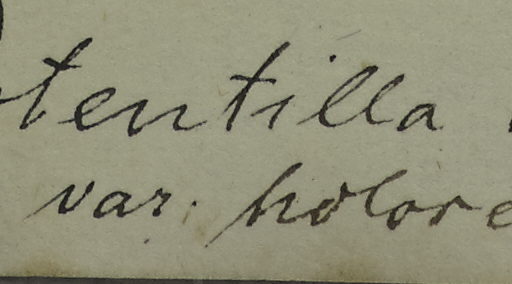 otentilla
var. holore